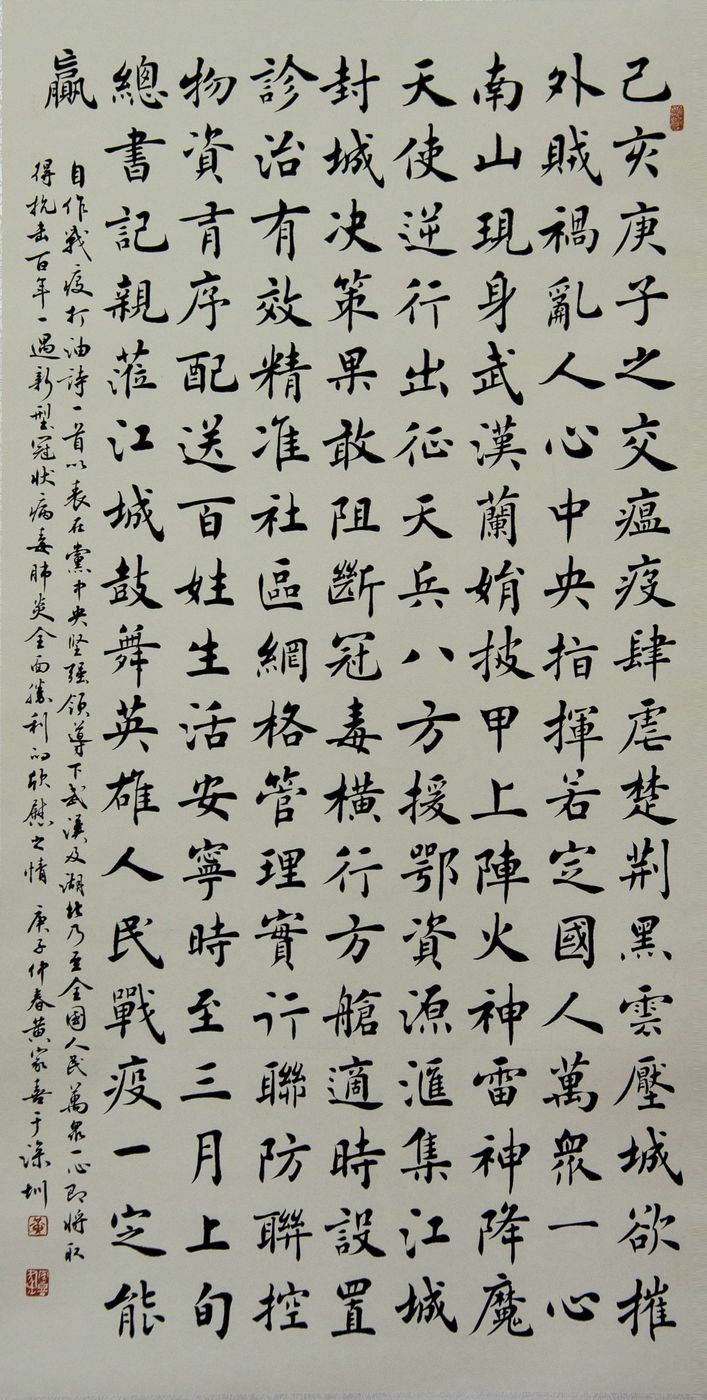 己亥庚子之交瘟疫肆虐楚荆黑雲壓城欲摧
外賊禍亂人心中央指揮若定國人萬衆一心
南山現身武漢蘭娟披甲上陣火神雷神降魔
天使逆行出征天兵八方援鄂資源滙集江城
封城决策果敢阻斷冠毒橫行方艙適時設置
診治有效精准社區網格管理實行聯防聯控
物資有序配送百姓生活安寧時至三月上旬
總書記親蒞江城鼓舞英雄人民戰疫一定能
贏
自作戰疫打油詩一首以表在黨中央坚强領導下武漢及湖北乃至全國人民萬衆一心即將取
得抗击百年一遇新型冠狀病毒肺炎全面勝利的欣慰之情 庚子仲春黄家喜于深圳